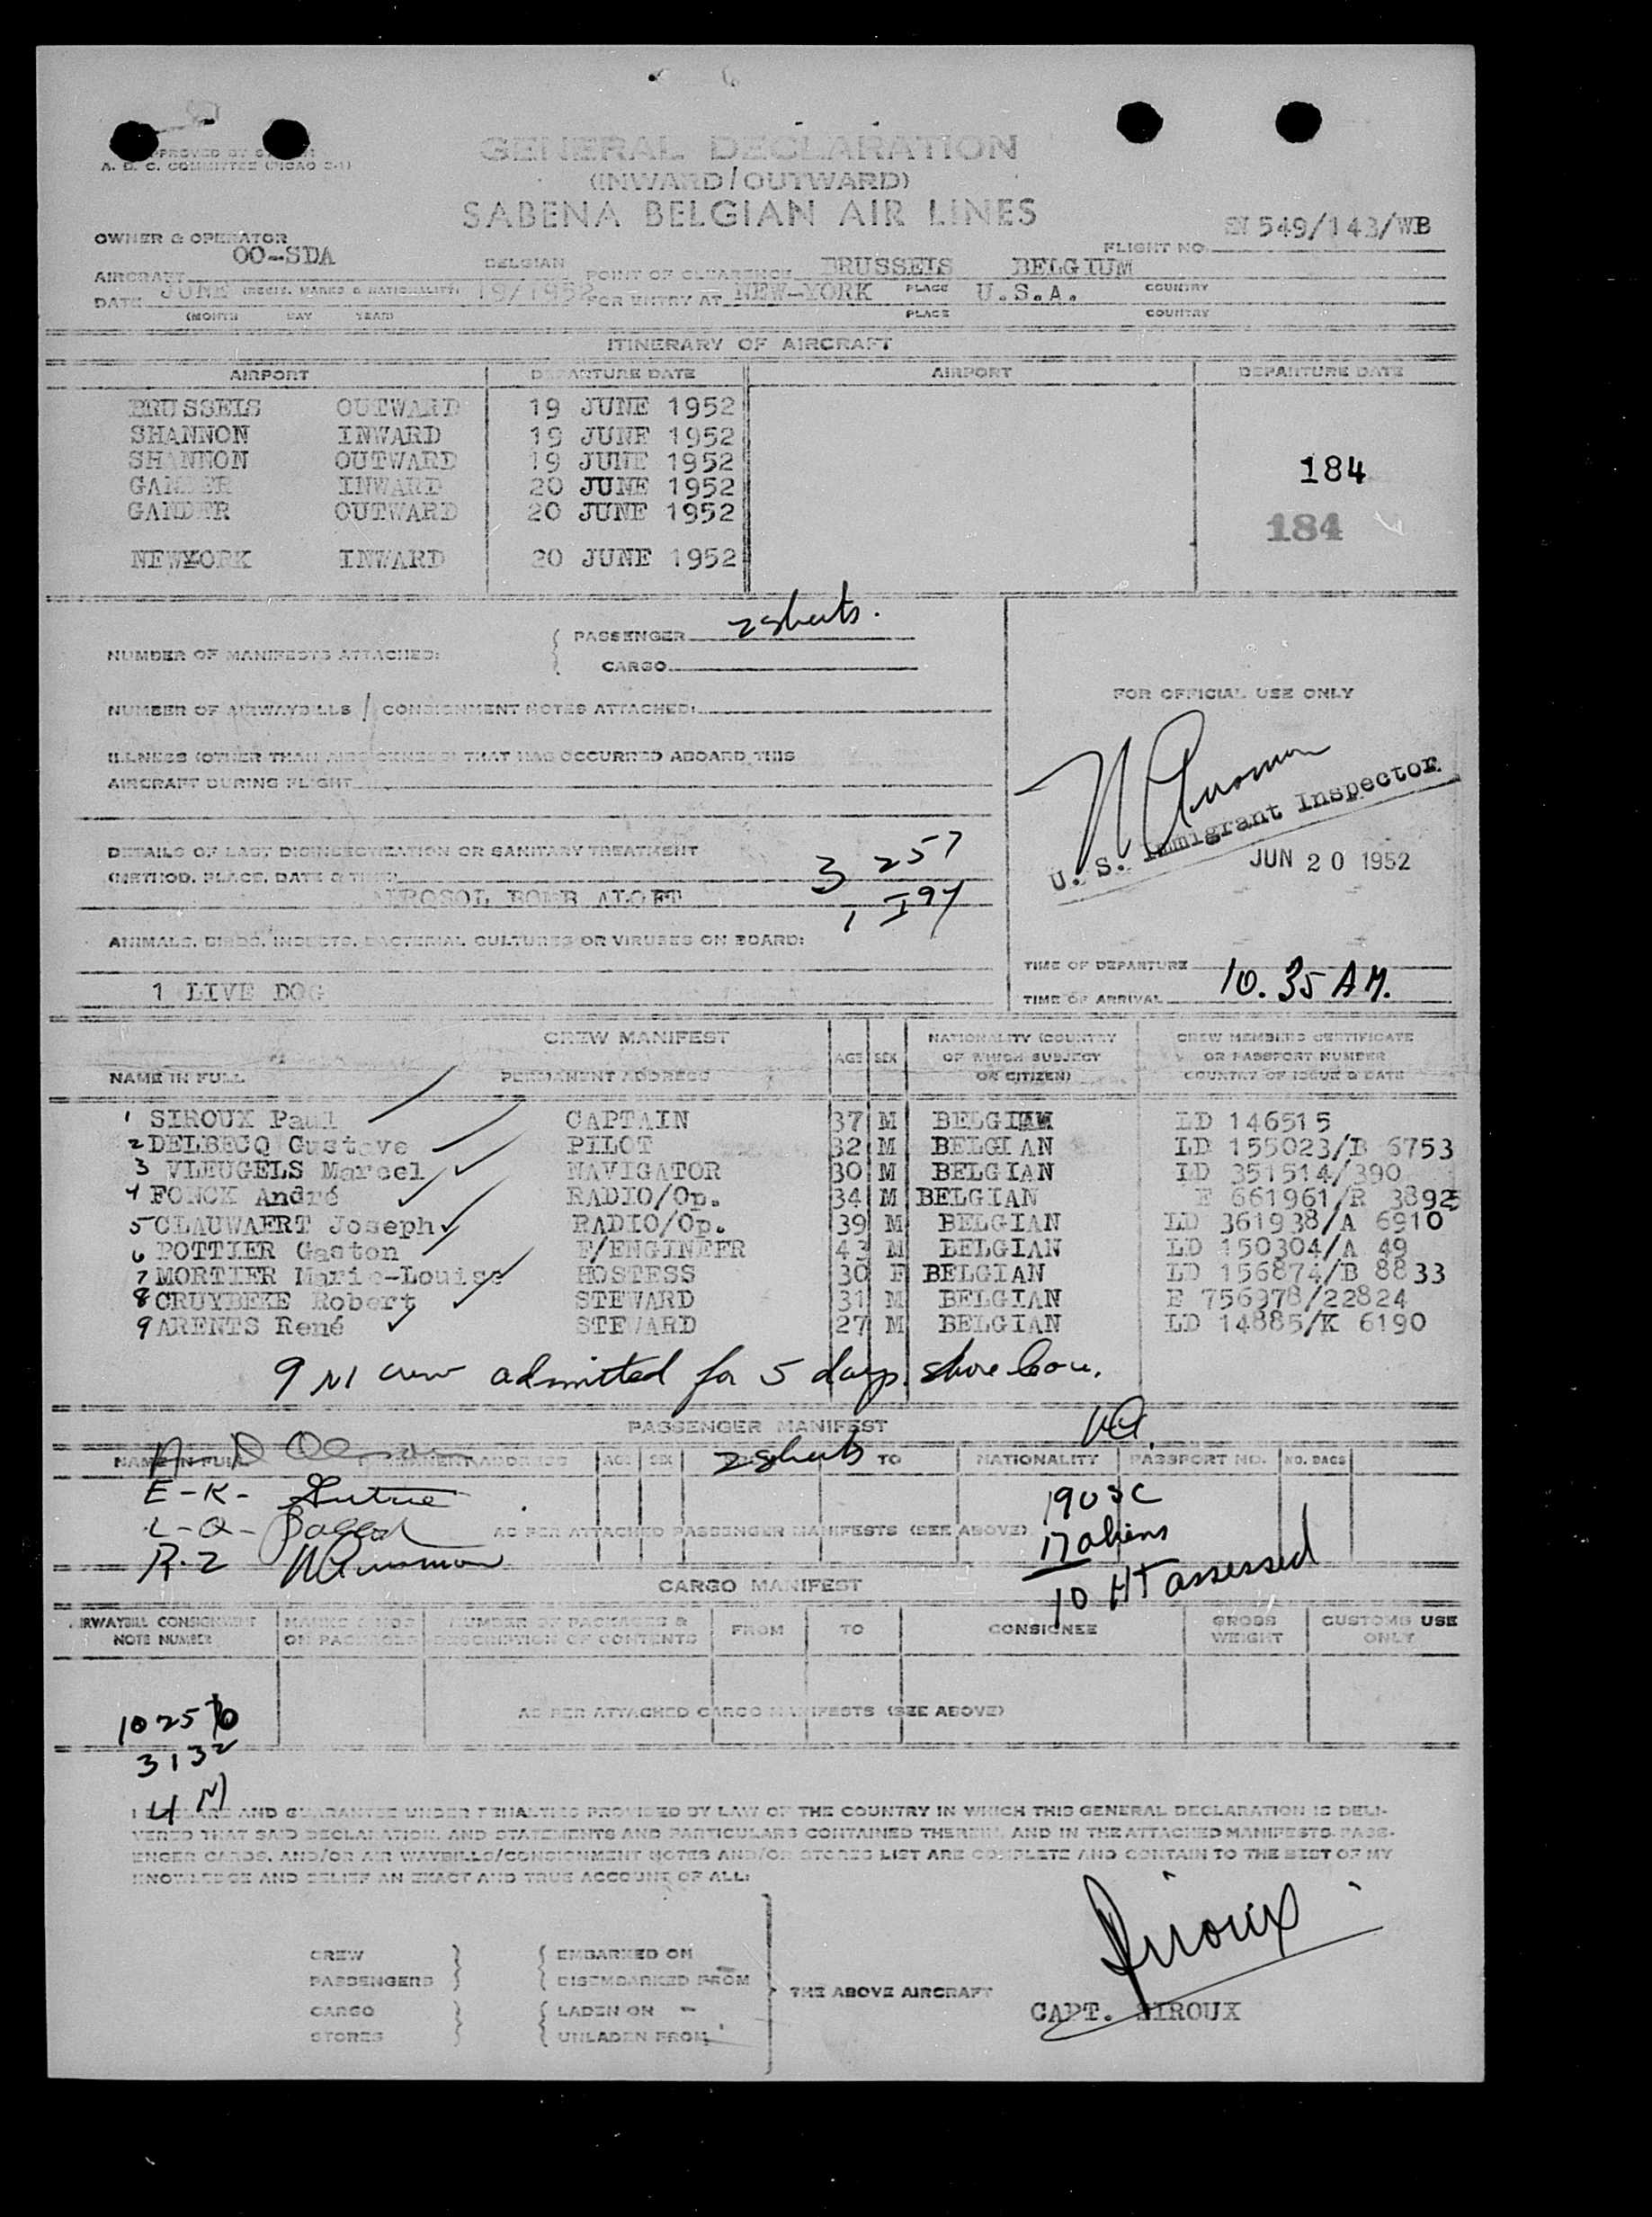 APPROVED BY
A. D. C. COMMITTEE (PICAO 2-1)
GENERAL DECLARATION
(INWARD/OUTWARD)
SABENA BELGIAN AIR LINES
OWNER & OPERATOR
FLIGHT NO. SN 549/143/WB
AIRCRAFT OO-SDA BELGIAN POINT OF CLEARENCE BRUSSELS BELGIUM
(REGIS. MARKS & NATIONALITY) PLACE COUNTRY
DATE JUNE 19/1952 FOR ENTRY AT NEW-YORK U.S.A.
(MONTH DAY YEAR) PLACE COUNTRY
ITINERARY OF AIRCRAFT
AIRPORT DEPARTURE DATE AIRPORT DEPARTURE DATE
BRUSSELS OUTWARD 19 JUNE 1952
SHANNON INWARD 19 JUNE 1952
SHANNON OUTWARD 19 JUNE 1952
184
GANDER INWARD 20 JUNE 1952
GANDER OUTWARD 20 JUNE 1952
184
NEWYORK INWARD 20 JUNE 1952
NUMBER OF MANIFESTS ATTACHED:
PASSENGER 2 sheets.
CARGO
FOR OFFICIAL USE ONLY
NUMBER OF AIRWAYBILLS / CONSIGNMENT NOTES ATTACHED:
ILLNESS (OTHER THAN AIRSICKNESS) THAT HAS OCCURRED ABOARD THIS
AIRCRAFT DURING FLIGHT
U. S. Immigrant Inspector
JUN 20 1952
DETAILS OF LAST DISINSECTIZATION OR SANITARY TREATMENT
(METHOD, PLACE, DATE & TIME)
3 257
AEROSOL BOMB ALOFT
1 I94
ANIMALS, BIRDS, INSECTS, BACTERIAL CULTURES OR VIRUSES ON BOARD:
1 LIVE DOG
TIME OF DEPARTURE
TIME OF ARRIVAL 10.35 AM.
CREW MANIFEST
NAME IN FULL PERMANENT ADDRESS AGE SEX NATIONALITY (COUNTRY OF WHICH SUBJECT OR CITIZEN) CREW MEMBERS CERTIFICATE OR PASSPORT NUMBER COUNTRY OF ISSUE & DATE
1 SIROUX Paul CAPTAIN 37 M BELGIAN LD 146515
2 DELBECQ Gustave PILOT 32 M BELGIAN LD 155023/B 6753
3 VLEUGELS Marcel NAVIGATOR 30 M BELGIAN LD 351514/390
4 FONCK André RADIO/Op. 34 M BELGIAN E 661961/R 38925
5 CLAUWAERT Joseph RADIO/Op. 39 M BELGIAN LD 361938/A 6910
6 POTTIER Gaston F/ENGINEER 43 M BELGIAN LD 150304/A 49
7 MORTIER Marie-Louise HOSTESS 30 F BELGIAN LD 156874/B 8833
8 CRUYBEKE Robert STEWARD 31 M BELGIAN E 756978/22824
9 ARENTS René STEWARD 27 M BELGIAN LD 14885/K 6190
9 NI crew admitted for 5 days shore leave.
PASSENGER MANIFEST
NAME IN FULL PERMANENT ADDRESS AGE SEX 2 sheets TO NATIONALITY PASSPORT NO. NO. BAGS
E-K-
19 USC
L-Q-
AS PER ATTACHED PASSENGER MANIFESTS (SEE ABOVE)
17 aliens
R-Z
10 HT assessed
CARGO MANIFEST
AIRWAYBILL CONSIGNMENT NOTE NUMBER MARKS & NOS ON PACKAGES NUMBER OF PACKAGES & DESCRIPTION OF CONTENTS FROM TO CONSIGNEE GROSS WEIGHT CUSTOMS USE ONLY
AS PER ATTACHED CARGO MANIFESTS (SEE ABOVE)
3132
4 M
I DECLARE AND GUARANTEE UNDER PENALTIES PROVIDED BY LAW OF THE COUNTRY IN WHICH THIS GENERAL DECLARATION IS DELI-
VERED THAT SAID DECLARATION, AND STATEMENTS AND PARTICULARS CONTAINED THEREIN, AND IN THE ATTACHED MANIFESTS, PASS-
ENGER CARDS, AND/OR AIR WAYBILLS/CONSIGNMENT NOTES AND/OR STORES LIST ARE COMPLETE AND CONTAIN TO THE BEST OF MY
KNOWLEDGE AND BELIEF AN EXACT AND TRUE ACCOUNT OF ALL:
CREW
PASSENGERS
EMBARKED ON
DISEMBARKED FROM
CARGO
STORES
LADEN ON
UNLADEN FROM
THE ABOVE AIRCRAFT
Siroux
CAPT. SIROUX